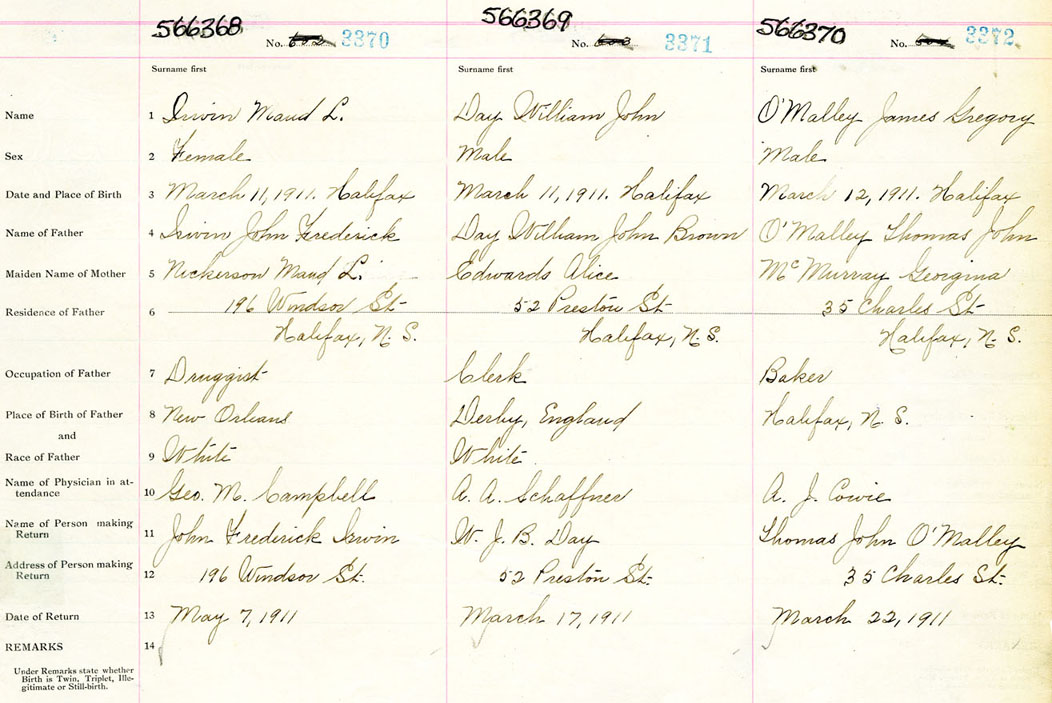 566368 566369 566370
No. 3370 No. 3371 No. 3372
Surname first Surname first Surname first
Name 1 Irwin Maud L. Day William John O'Malley James Gregory
Sex 2 Female Male Male
Date and Place of Birth 3 March 11, 1911. Halifax March 11, 1911. Halifax March 12, 1911. Halifax
Name of Father 4 Irwin John Frederick Day William John Brown O'Malley Thomas John
Maiden Name of Mother 5 Nickerson Maud L. Edwards Alice McMurray Georgina
Residence of Father 6 196 Windsor St. 52 Preston St. 35 Charles St.
Halifax, N.S. Halifax, N.S. Halifax, N.S.
Occupation of Father 7 Druggist Clerk Baker
Place of Birth of Father 8 New Orleans Derby, England Halifax, N.S.
and
Race of Father 9 White White
Name of Physician in at-
tendance 10 Geo. M. Campbell A. A. Schaffner A. J. Cowie
Name of Person making
Return 11 John Frederick Irwin W. J. B. Day Thomas John O'Malley
Address of Person making
Return 12 196 Windsor St. 52 Preston St. 35 Charles St.
Date of Return 13 May 7, 1911 March 17, 1911 March 22, 1911
REMARKS 14
Under Remarks state whether
Birth is Twin, Triplet, Ille-
gitimate or Still-birth.